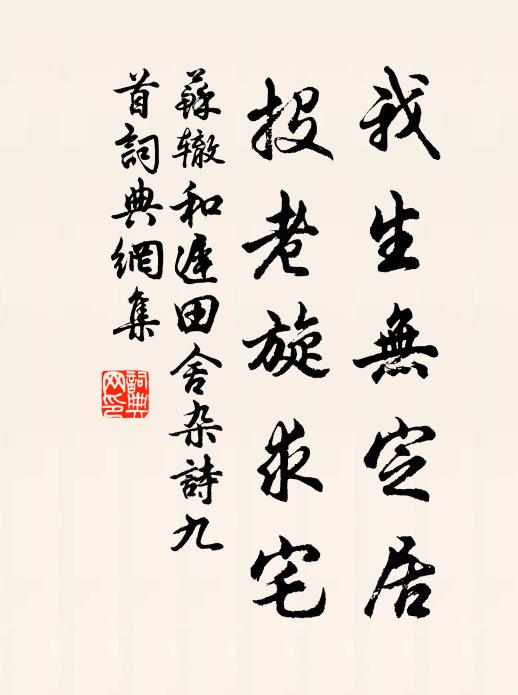 我生無定居
投老旋求宅
蘇轍和遲田舍杂詩九
首詞典網集
詞典
网印